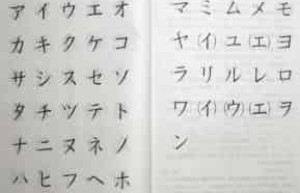 ア イ ウ エ オ
カ キ ク ケ コ
サ シ ス セ ソ
タ チ ツ テ ト
ナ ニ ヌ ネ ノ
ハ ヒ フ ヘ ホ
マ ミ ム メ モ
ヤ (イ) ユ (エ) ヨ
ラ リ ル レ ロ
ワ (イ) (ウ) (エ) ヲ
ン